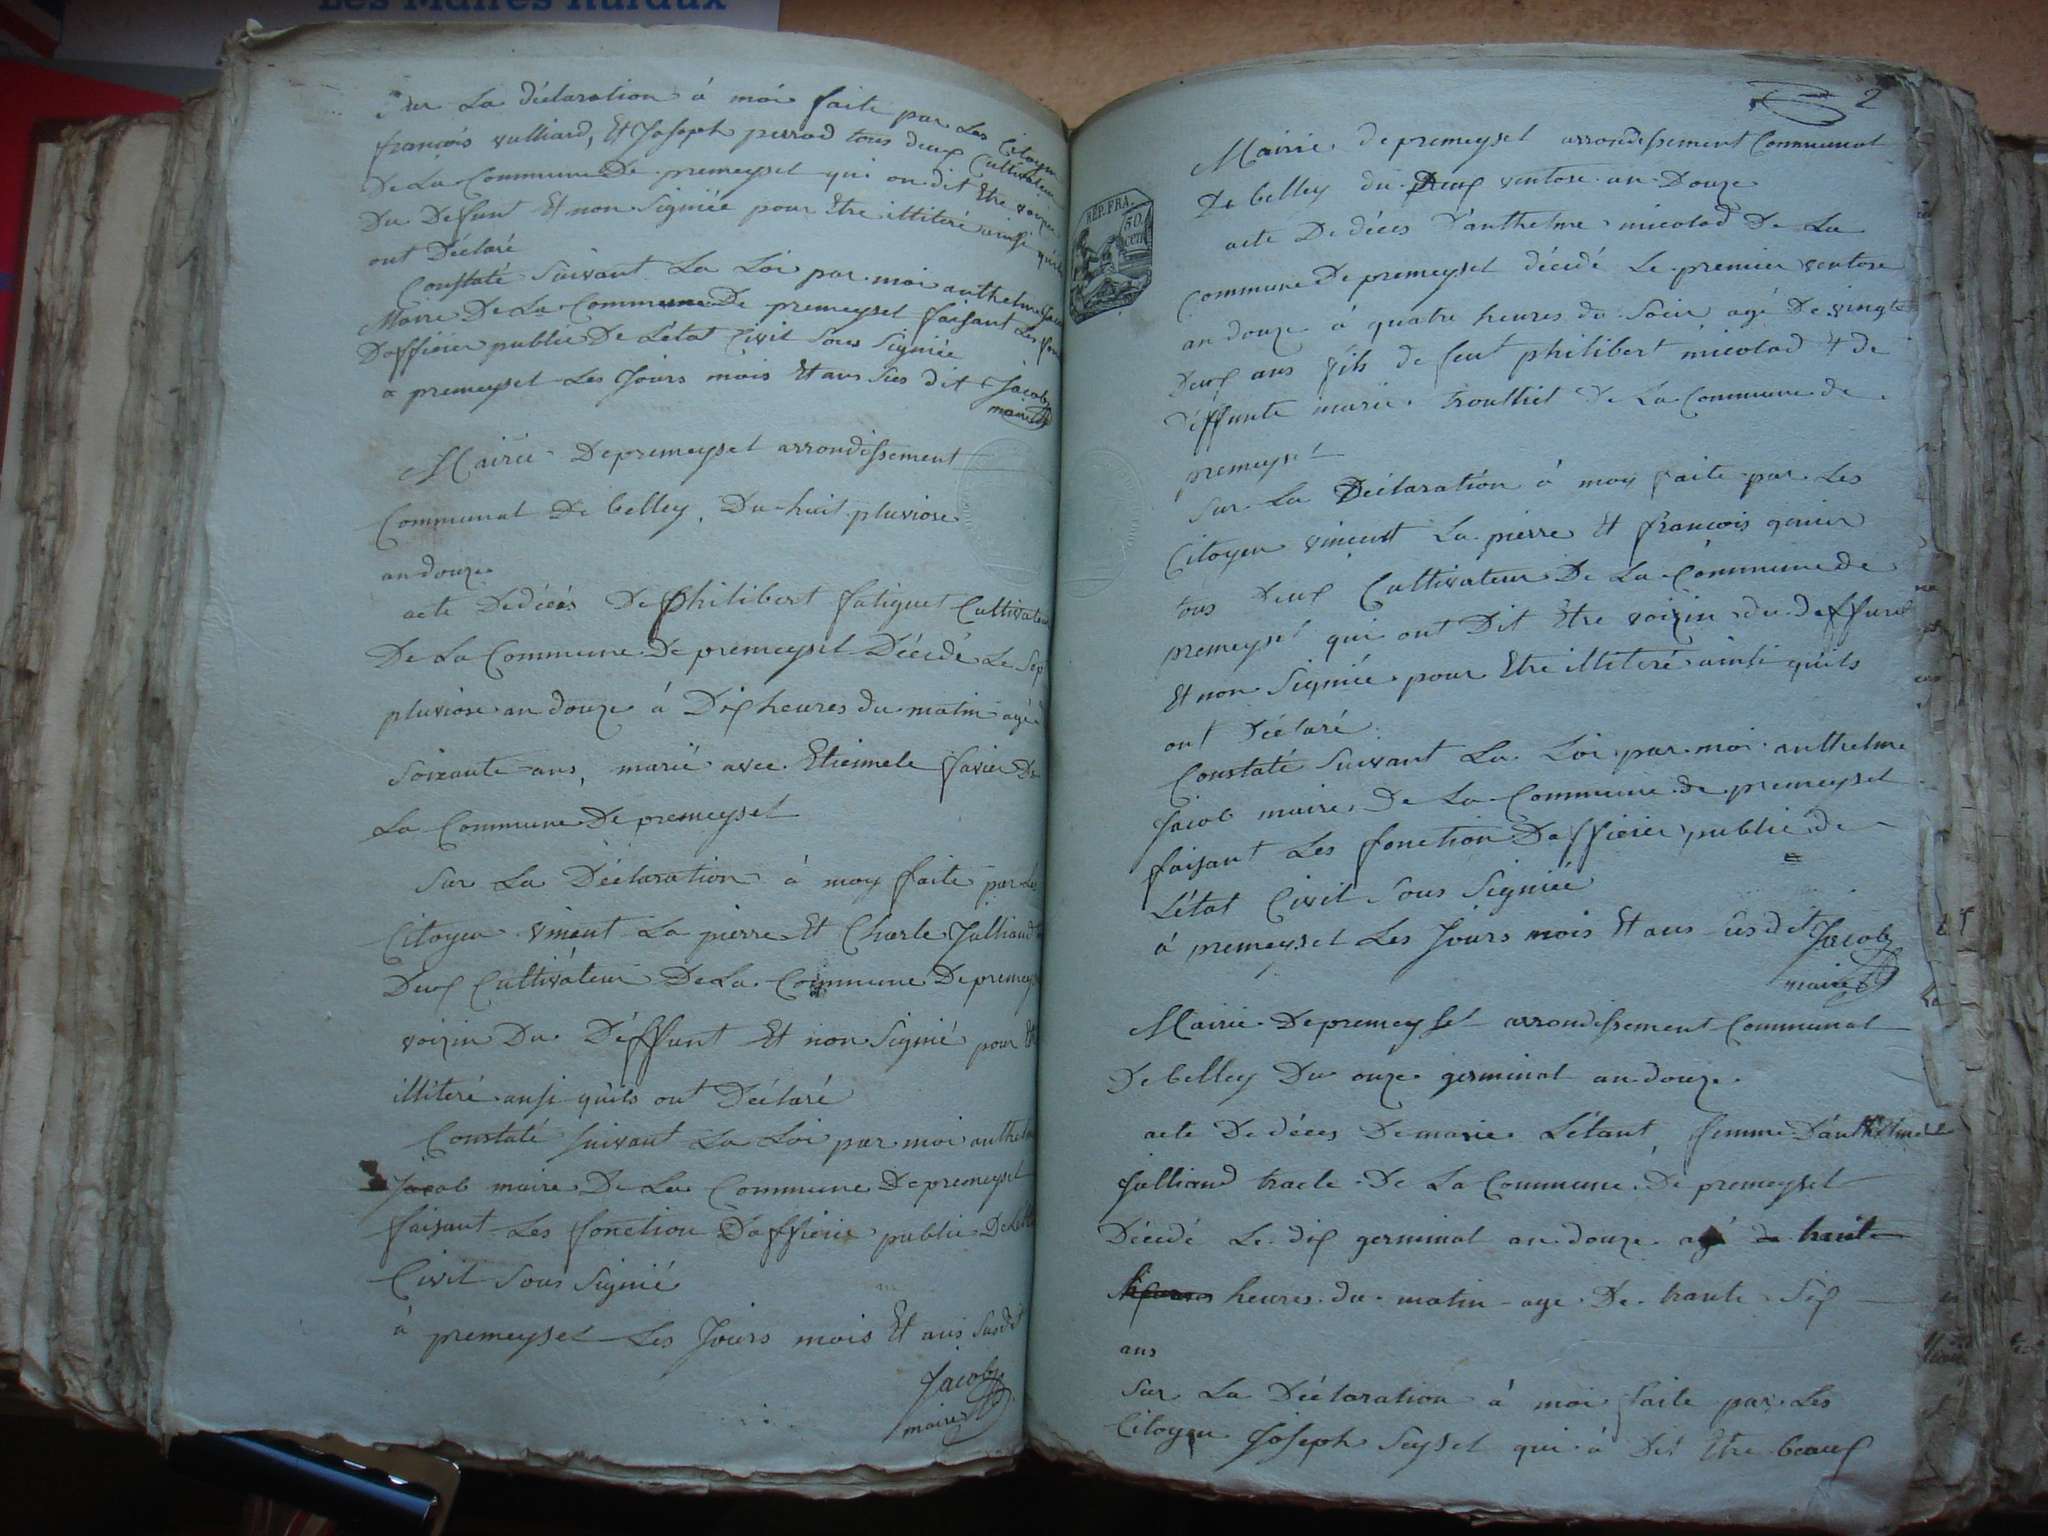 Les Maires Ruraux
Sur La déclaration à moi faite par Les Citoyen
françois vulliard, Et Joseph perrad tous deux Cultivateur
De La Commune De premeysel qui on dit Etre voizin
Du Defunt Et non Signiée pour Etre illiteré ainsi quils
ont Déclaré
Constaté Suivant La Loi par moi anthelme Jacob
Maire De La Commune De premeysel faisant Les fon
Dofficier public De L'état Civil Sous Signiée
a premeysel Les Jours mois Et ans Sus dit Jacob
maire
Mairie De premeysel arrondissement
Communal De belley, Du huit pluviose
an douze
acte Dedécés De philibert fatiguet Cultivateur
De La Commune De premeysel Décédé Le Sep
pluviose an douze à Dix heures du matin agé
Soixante ans, marié avec Etiennete favier De
La Commune De premeysel
Sur La Déclaration à moy faite par Les
Citoyen vinent La pierre Et Charle Julliand
Deux Cultivateur De La Commune De premeys
voizin Du Déffunt Et non Signié pour Etre
illiteré ansi quils ont Déclaré
Constaté suivant La Loi par moi anthelm
Jacob maire De La Commune De premeysel
faisant Les fonction Dofficier public De L'état
Civil Sous Signié
à premeysel Les Jours mois Et ans Susdit
Jacob
maire
2
Mairie de premeysel arrondissement Communal
De belley du Deux ventose an Douze
REP. FRA.
50
cen
acte De décés D'anthelme micolad De La
Commune De premeysel décédé Le premier ventose
an douze à quatre heures du Soir agé De vingt
Deux ans fils de feut philibert micolad & de
déffunte marie trouttiet De La Commune de
premeysel
Sur La Déclaration à moy faite par Les
Citoyen vincent La pierre Et françois genier
tous Deux Cultivateur De La Commune de
premeysel qui ont Dit Etre voizin du deffunt
Et non Signiée pour Etre illiteré ainsi quils
ont Déclaré
Constaté Suivant La Loi par moi anthelme
Jacob maire De La Commune de premeysel
faisant Les fonction Dofficier public de
L'état Civil Sous Signiée
à premeysel Les Jours mois Et ans susdit Jacob
maire
Mairie De premeysel arrondissement Communal
De belley Du onze germinal an douze
acte De décés De marie Létant, femme D'anthelme
Julliand tracle De La Commune De premeysel
Décédé Le dix germinal an douze agé de huit
heures du matin age De trante Six
ans
Sur La Déclaration à moi faite par Les
Citoyen Joseph Seysel qui à Dit Etre beaux